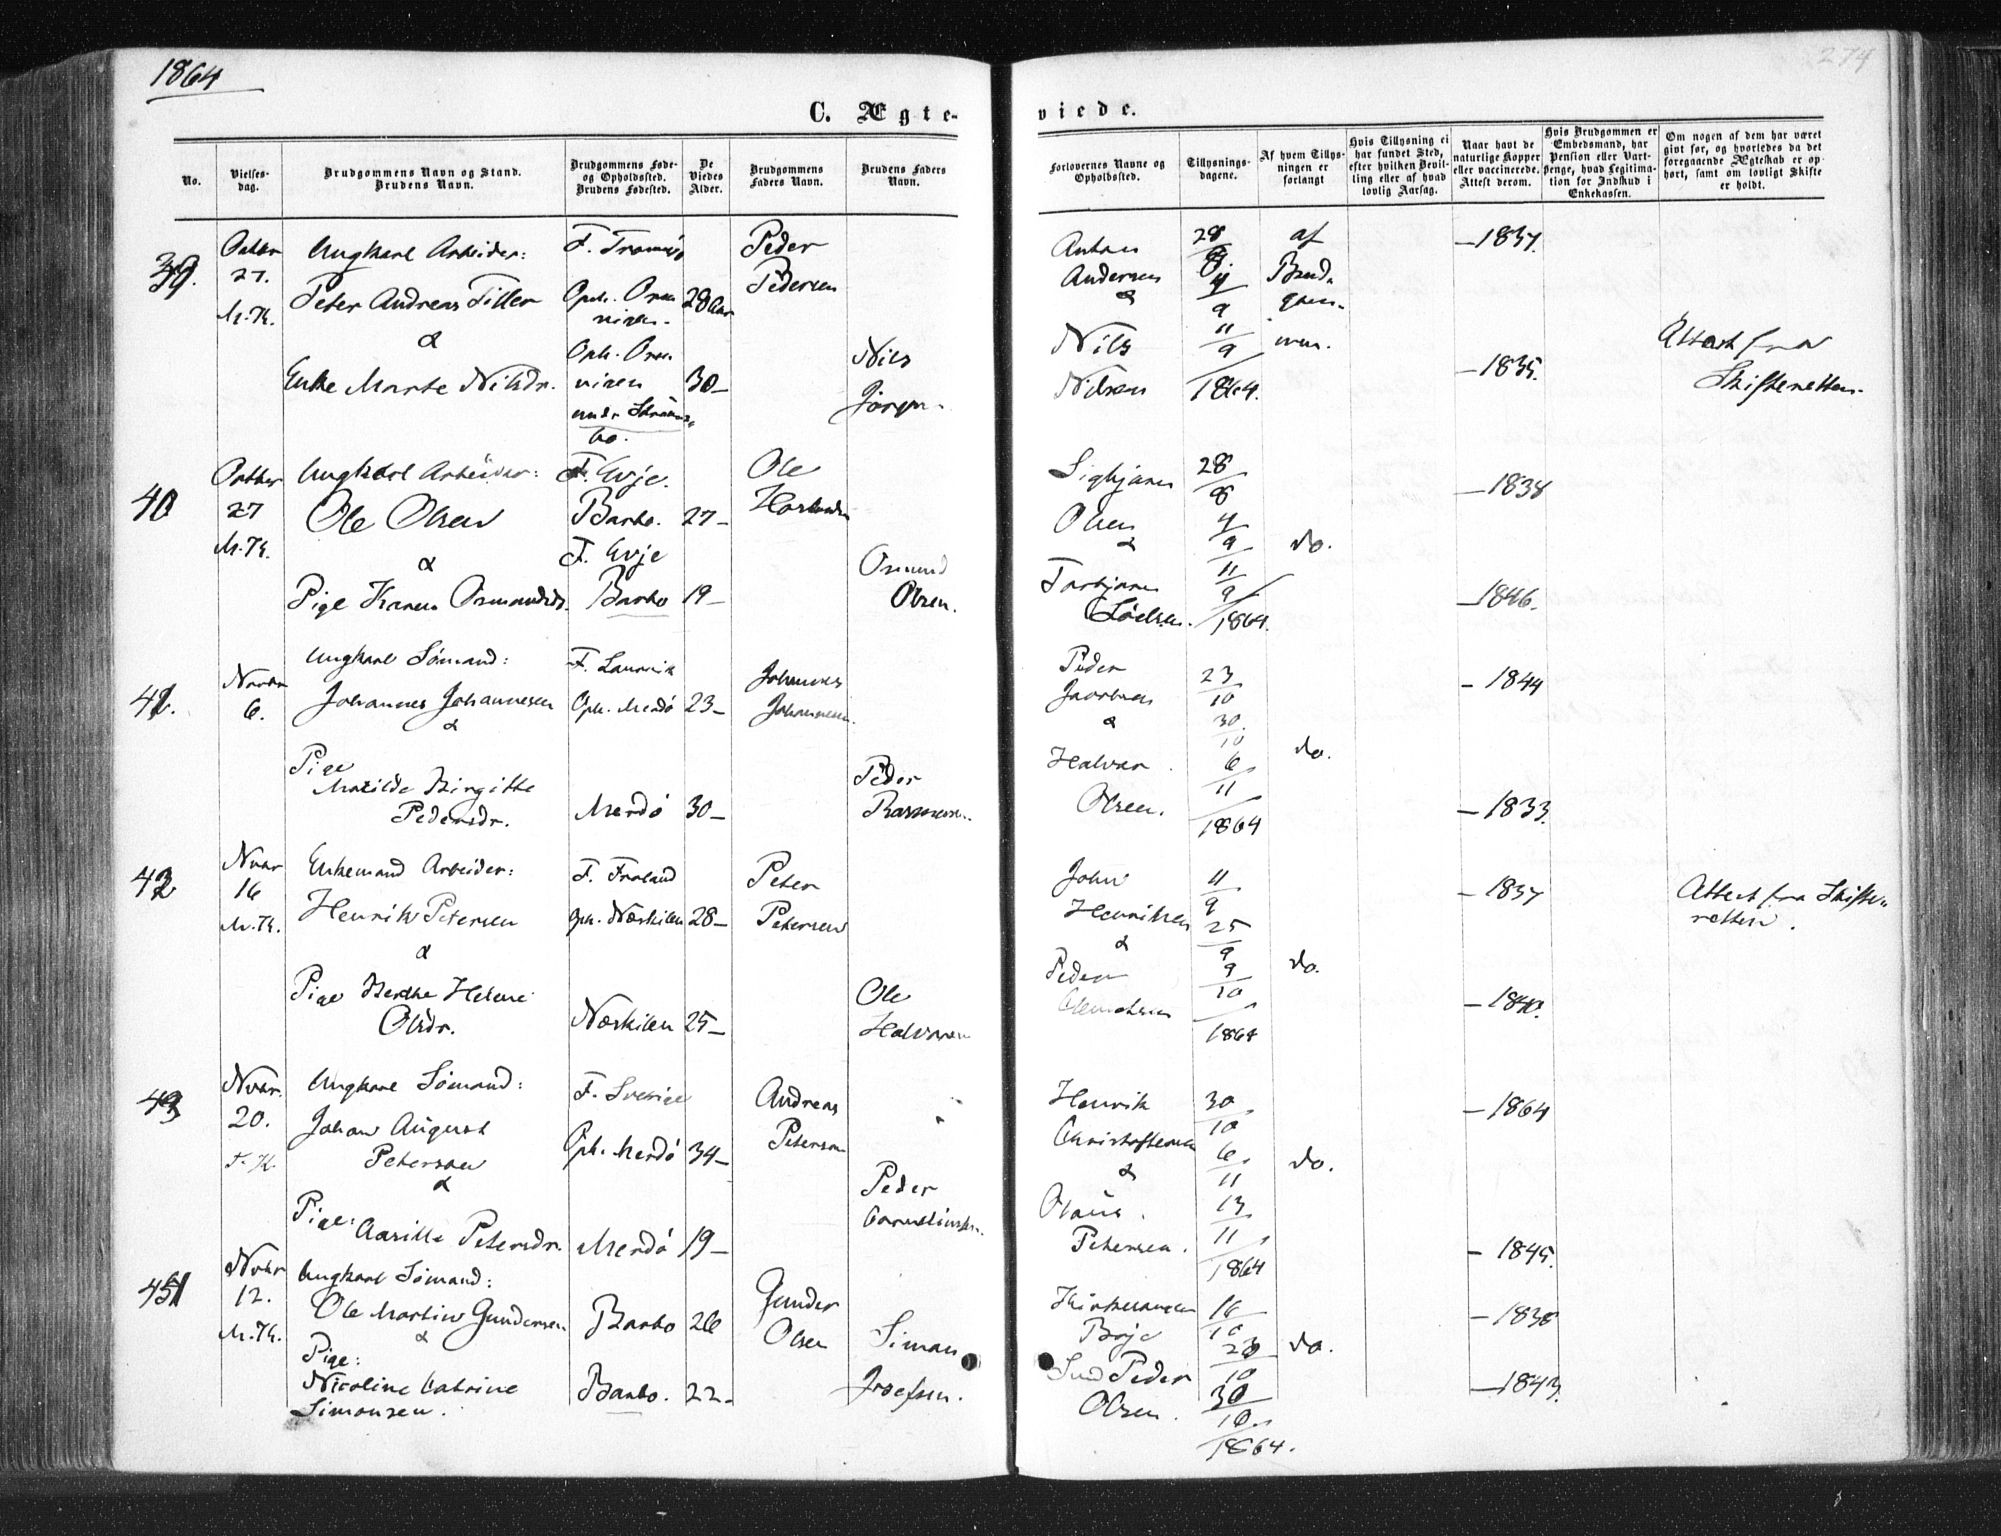 1864
274
C. Ægte-
viede.
No.
Vielses-
dag.
Brudgommens Navn og Stand.
Brudens Navn.
Brudgommens Føde-
og Opholdssted.
Brudens Fødested.
De
Viedes
Alder.
Brudgommens
Faders Navn.
Brudens Faders
Navn.
Forlovernes Navne og
Opholdssted.
Tillysnings-
dagene.
Af hvem Tillys-
ningen er
forlangt
Hvis Tillysning ei
har fundet Sted,
efter hvilken Bevil-
ling eller af hvad
lovlig Aarsag.
Naar havt de
naturlige Kopper
eller vaccinerede.
Attest derom.
Hvis Brudgommen er
Embedsmand, har
Pension eller Vart-
penge, hvad Legitima-
tion for Indskud i
Enkekassen.
Om nogen af dem har været
givt før, og hvorledes da det
foregaaende Ægteskab er op-
hørt, samt om lovligt Skifte
er holdt.
39.
27.
M. K.
Ungkarl Arbeider:
Peter Andreas Titler
&
Enke Marte Nilsdr.
F. Tromø
28 Aar
30-
Peder
Pedersen
Nils
Anton
Andersen
&
Nils
Nilsen
28
9
11
9
1864.
af
Brud-
- 1837.
- 1835.
Attest fra
Skifteretten.
40
Octber
27
M. K.
Ungkarl Arbeider:
Ole Olsen
&
Pige Karen Osmundsdr.
F. Evje.
Barbo.
F. Evje
Barbo
27-
19-
Ole
Osmund
Olsen.
Sigbjørn
Olsen
&
Torbjørn
28
8
4
9
11
9
1864.
do.
- 1838
- 1846.
41.
6.
Ungkarl Sømand:
Johannes Johannesen
&
Pige
Matilde Birgitte
Pedersdr.
F. Laurvik
Oph. Merdø
Merdø
23-
30-
Johannes
Johannesen.
Peder
Rasmussen.
Peder
Jacobsen
&
Halvor
Olsen.
23
10
30
10
6
11
1864
do.
- 1844
- 1833.
42
Nvbr
16
M. K.
Enkemand Arbeider:
Henrik Petersen
&
Pige Berthe Helene
Olsdr.
F. Froland
Oph. Næskilen
Næskilen
28-
25-
Peter
Petersen
Ole
Halvorsen
John
Henriksen
&
Peder
11
9
25
9
9
10
1864
do.
- 1837
- 1840.
Attest fra Skifte-
retten.
43
Nvbr.
20.
Ungkarl Sømand:
Johan August
Peterson
&
Pige:
Petersdr.
F. Sverige
Oph. Merdø
Merdø
34-
19-
Andreas
Peterson
Peder
Henrik
Christophersen
&
Olaus.
Petersen.
30
10
6
11
13
11
1864
do.
- 1864
- 1845.
Nvbr
12.
M. K.
Ungkarl Sømand:
Ole Martin Gundersen
&
Pige:
Nicoline Catrine
Simonsen.
Barbo
Barbo.
26
22-
Gunder
Olsen
Simon
Josefsen.
Peder
Olsen.
16
10
23
10
30
10
1864.
do.
- 1838
- 1843.